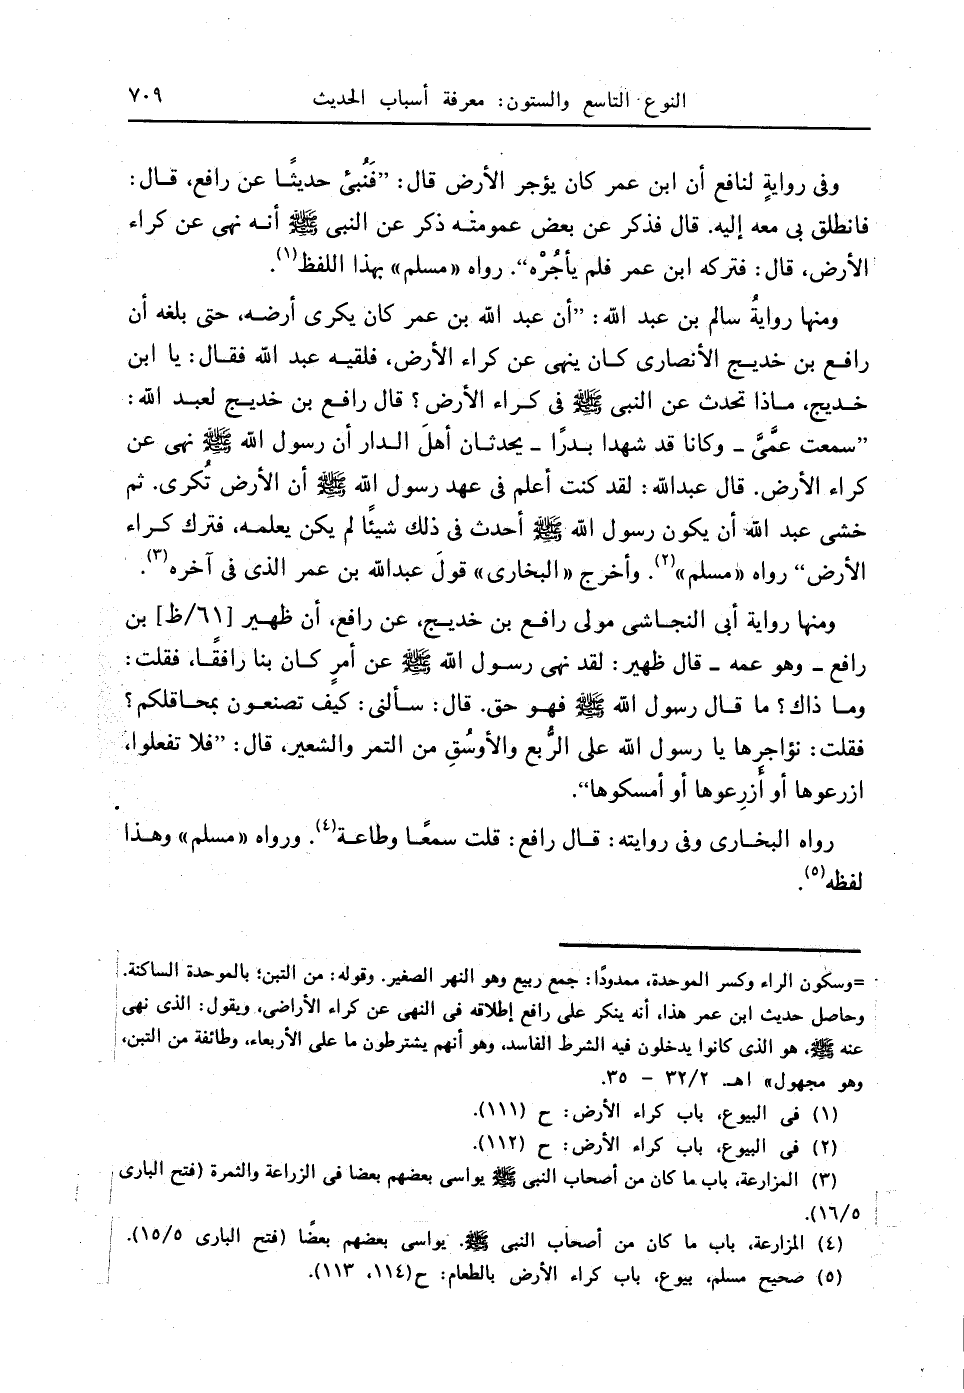 النوع التاسع والستون: معرفة أسباب الحديث ٧٠٩
وفى روايةٍ لنافع أن ابن عمر كان يؤجر الأرض قال: ”فَنُبئَ حديثًـا عن رافع، قـال:
فانطلق بى معه إليه. قال فذكر عن بعض عمومتـه ذكر عن النبى ﷺ أنـه نهى عن كراء
الأرض، قال: فتركه ابن عمر فلم يأجُرْه“. رواه «مسلم» بهذا اللفظ(١).
ومنها روايةُ سالم بن عبد الله: ”أن عبد الله بن عمر كان يكرى أرضـه، حتى بلغه أن
رافـع بن خديـج الأنصارى كـان ينهى عن كراء الأرض، فلقيـه عبد الله فقـال: يا ابن
خـديج، مـاذا تحدث عن النبى ﷺ فى كـراء الأرض؟ قال رافـع بن خديـج لعبـد الله:
”سمعت عمَّىَّ ـ وكانا قد شهدا بـدرًا ـ يحدثـان أهلَ الـدار أن رسول الله ﷺ نهى عن
كراء الأرض. قال عبدالله: لقد كنت أعلم فى عهد رسول الله ﷺ أن الأرض تُكرى. ثم
خشى عبد الله أن يكون رسول الله ﷺ أحدث فى ذلك شيئًا لم يكن يعلمـه، فترك كـراء
الأرض“ رواه «مسلم»(٢). وأخرج «البخارى» قولَ عبدالله بن عمر الذى فى آخره(٣).
ومنها رواية أبى النجـاشى مولى رافـع بن خديـج، عن رافع، أن ظهـير [٦١/ظ] بن
رافع ـ وهو عمه ـ قال ظهير: لقد نهى رسـول الله ﷺ عن أمرٍ كـان بنا رافقًـا، فقلت:
ومـا ذاك؟ ما قـال رسول الله ﷺ فهـو حق. قال: سـألنى: كيف تصنعـون بمحـاقلكم؟
فقلت: نؤاجرها يا رسول الله على الرُّبع والأوسُقِ من التمر والشعير، قال: ”فلا تفعلوا،
ازرعوها أو أَزرِعوها أو أمسكوها“.
رواه البخـارى وفى روايته: قـال رافع: قلت سمعًـا وطاعـة(٤). ورواه «مسلم» وهـذا
لفظه(٥).
=وسكون الراء وكسر الموحدة، ممدودًا: جمع ربيع وهو النهر الصغير. وقوله: من التبن؛ بالموحدة الساكنة.
وحاصل حديث ابن عمر هذا، أنه ينكر على رافع إطلاقه فى النهى عن كراء الأراضى، ويقول: الذى نهى
عنه ﷺ، هو الذى كانوا يدخلون فيه الشرط الفاسد، وهو أنهم يشترطون ما على الأربعاء، وطائفة من التبن،
وهو مجهول» اهـ ٣٢/٢ - ٣٥.
(١) فى البيوع، باب كراء الأرض: ح (١١١).
(٢) فى البيوع، باب كراء الأرض: ح (١١٢).
(٣) المزارعة، باب ما كان من أصحاب النبى ﷺ يواسى بعضهم بعضا فى الزراعة والثمرة (فتح البارى
١٦/٥).
(٤) المزارعة، باب ما كان من أصحاب النبى ﷺ. يواسى بعضهم بعضًا (فتح البارى ١٥/٥).
(٥) صحيح مسلم، بيوع، باب كراء الأرض بالطعام: ح(١١٤، ١١٣).